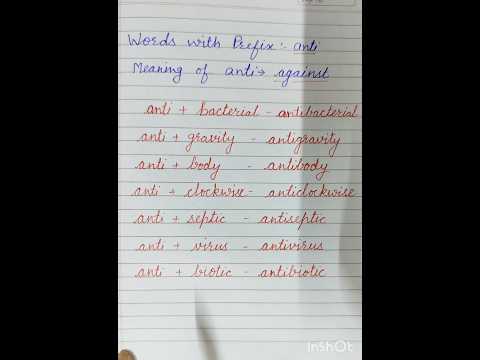 Words with Prefix:- anti
Meaning of anti→ against
anti + bacterial - antibacterial
anti + gravity - antigravity
anti + body - antibody
anti + clockwise - anticlockwise
anti + septic - antiseptic
anti + virus - antivirus
anti + biotic - antibiotic
InShOt